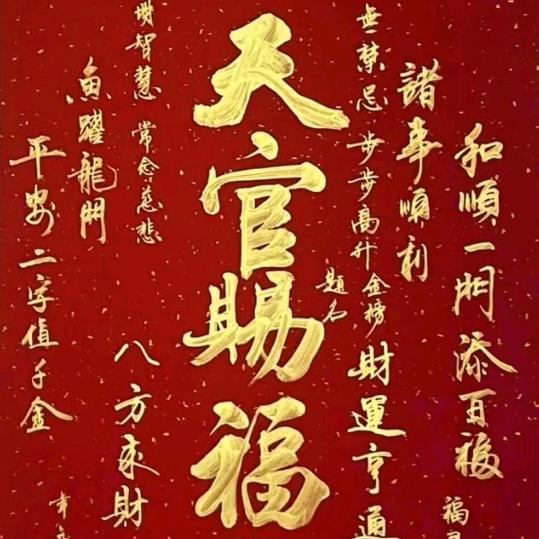 和順一門添百福
福
諸事順利
無禁忌 步步高升 金榜題名
財運亨通
天官賜福
智慧 常念慈悲
八方來財
魚躍龍門
平安二字值千金